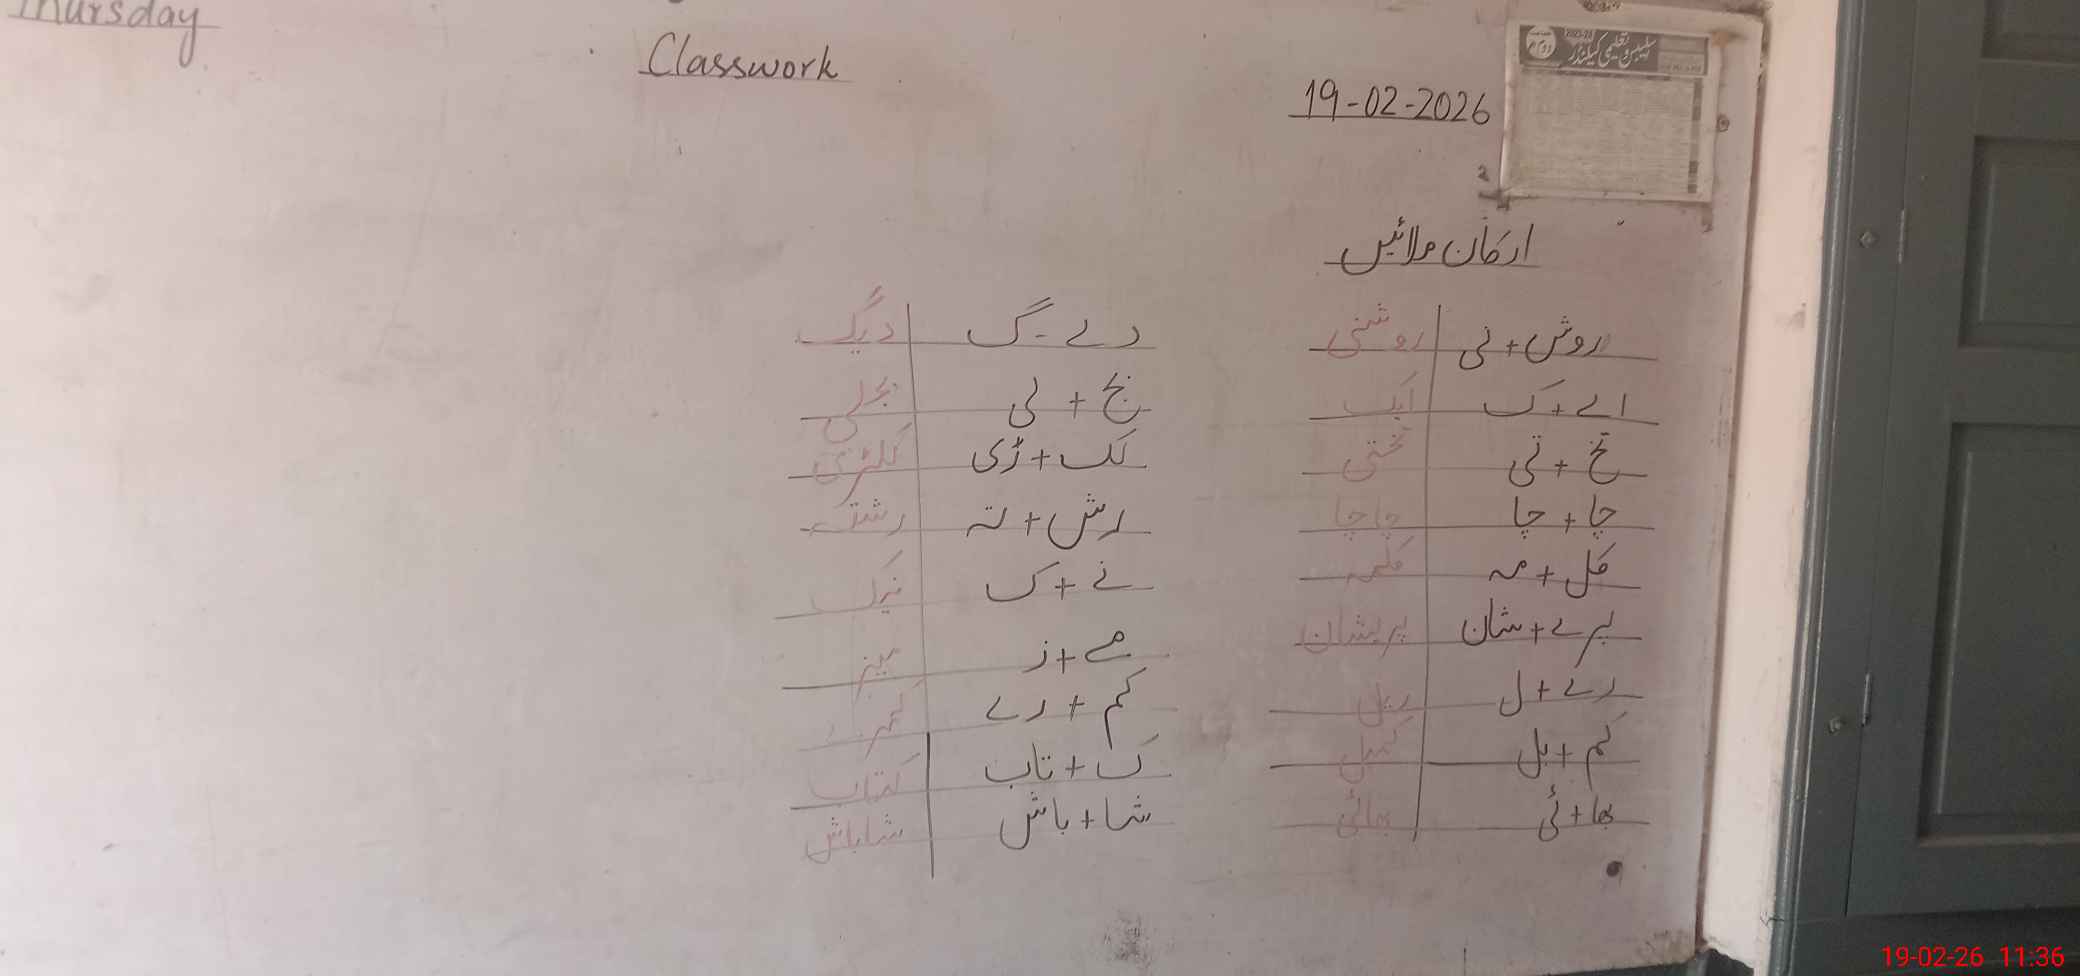 Thursday
Classwork
19-02-2026
سلیبس و تعلیمی کیلنڈر
ارکان ملائیں
روش + نی | روشنی
اے + ک | ایک
تخ + تی | تختی
چا + چا | چاچا
کل + مہ | کلمہ
پرے + شان | پریشان
رے + ل | ریل
کم + بل | کمبل
بھا + ئی | بھائی
دے - گ | دیگ
بج + لی | بجلی
لک + ڑی | لکڑی
رش + تہ | رشتہ
نے + ک | نیک
مے + ز | میز
کم + رے | کمرے
ک + تاب | کتاب
شا + باش | شاباش
19-02-26 11:36